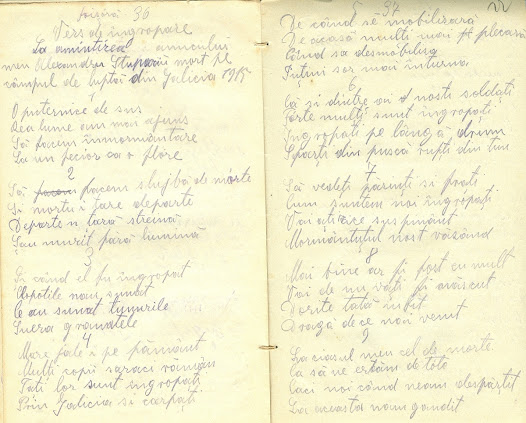 36
Vers de îngropare
La amintirea amicului
meu Alexandru Stupariu mort pe
câmpul de luptă din Galicia 1915
1
O puternice de sus
Rea lume am mai ajuns
Să facem înmormântare
La un fecior ca o flore
2
Să facem slujbă de morte
Și mortu i tare departe
Departe n țară streină
Sau murit fără lumină
3
Și când el fu îngropat
Clopotile nau sunat
Ce au sunat tunurile
Șuera granatele
4
Mare jale i pe pământ
Mulți copii saraci rămân
Tați lor sunt îngropați
Prin Galicia si carpați
37
5
De când să mobilizară
De acasă mulți mai plecară
Când sa desmobiliza
Puțini sor mai înturna
6
Că și dintre voi noști soldați
Forte mulți sunt îngropați
Îngropați pe lângă drum
Sparți din pușcă rupți din tun
7
Să vedeți părinți si frați
Cum suntem noi îngropați
Voi ați zice suspinând
Mormântuțul nost văzând
8
Mai bine ar fi fost cu mult
Voi de nu vați fi născut
Dorite tată iubit
Dragă de ce nai venit
9
La ciasul meu cel de morte
Ca să ne ertăm de tote
Caci noi când neam despărțit
La aceasta nam gandit